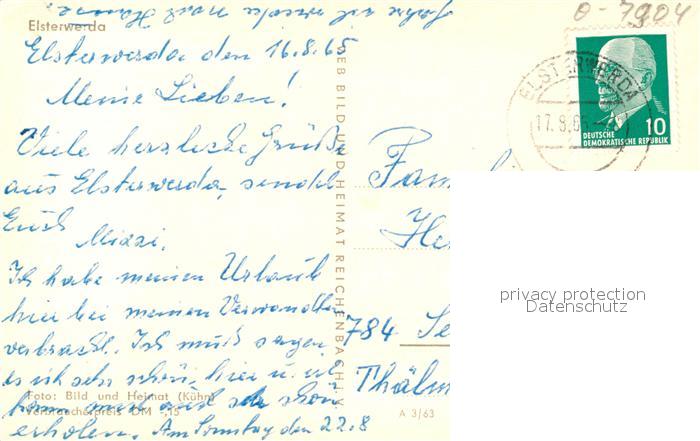 fahre ich wieder nach Hause.
O-7904
Elsterwerda
Elsterwerda den 16.8.65
Meine Lieben!
Viele herzliche Grüße
aus Elsterwerda, sendet
Euch
Mizzi.
Ich habe meinen Urlaub
hier bei meinen Verwandten
verbracht. Ich muß sagen,
es ist sehr schön, hier u. ich
kann mich auch sehr schön
erholen. Am Sonntag den 22.8
Foto: Bild und Heimat (Kühn)
Verbraucherpreis DM -,15
VEB BILD UND HEIMAT REICHENBACH I. V.
A 3/63
ELSTERWERDA
17.8.65
10
DEUTSCHE
DEMOKRATISCHE REPUBLIK
Fam
He
784 Se
Thälm
privacy protection
Datenschutz